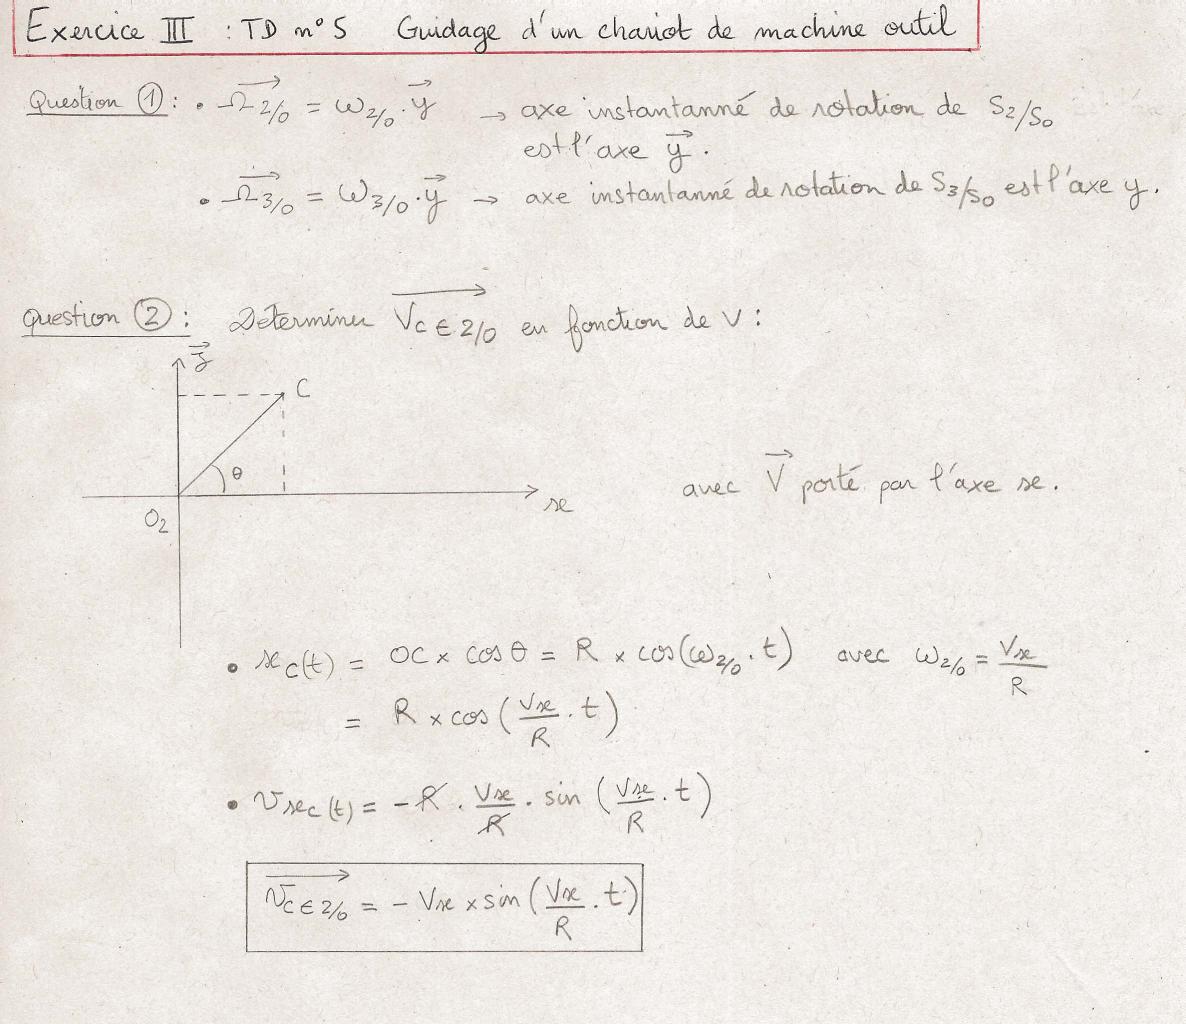 Exercice III : TD n° 5 Guidage d'un chariot de machine outil
Question ① : • Ω⃗2/0 = ω2/0 · y⃗ → axe instantanné de rotation de S2/S0
est l'axe y⃗.
• Ω⃗3/0 = ω3/0 · y⃗ → axe instantanné de rotation de S3/S0 est l'axe y.
Question ② : Déterminer V⃗C∈2/0 en fonction de V :
z⃗
C
θ
avec V⃗ porté par l'axe x.
x
O2
• xC(t) = OC × cos θ = R × cos(ω2/0 · t) avec ω2/0 = Vx/R
= R × cos(Vx/R · t)
• VxC(t) = -R · Vx/R · sin(Vx/R · t)
V⃗C∈2/0 = - Vx × sin(Vx/R · t)